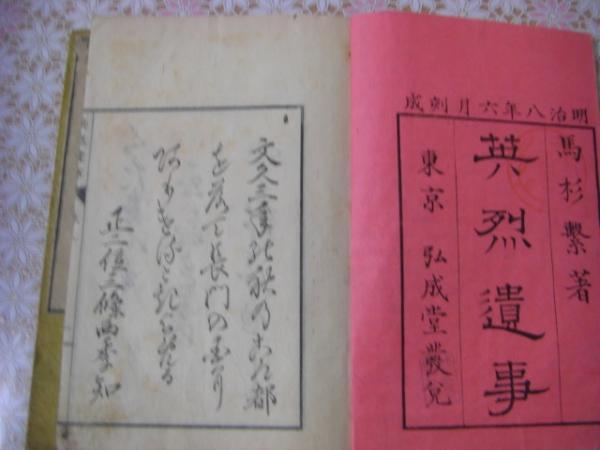 明治八年六月刻成
馬杉繫著
英烈遺事
東京 弘成堂發兌
文久三年の秋のころ都
を落て長門の国に
正二位三條西季知